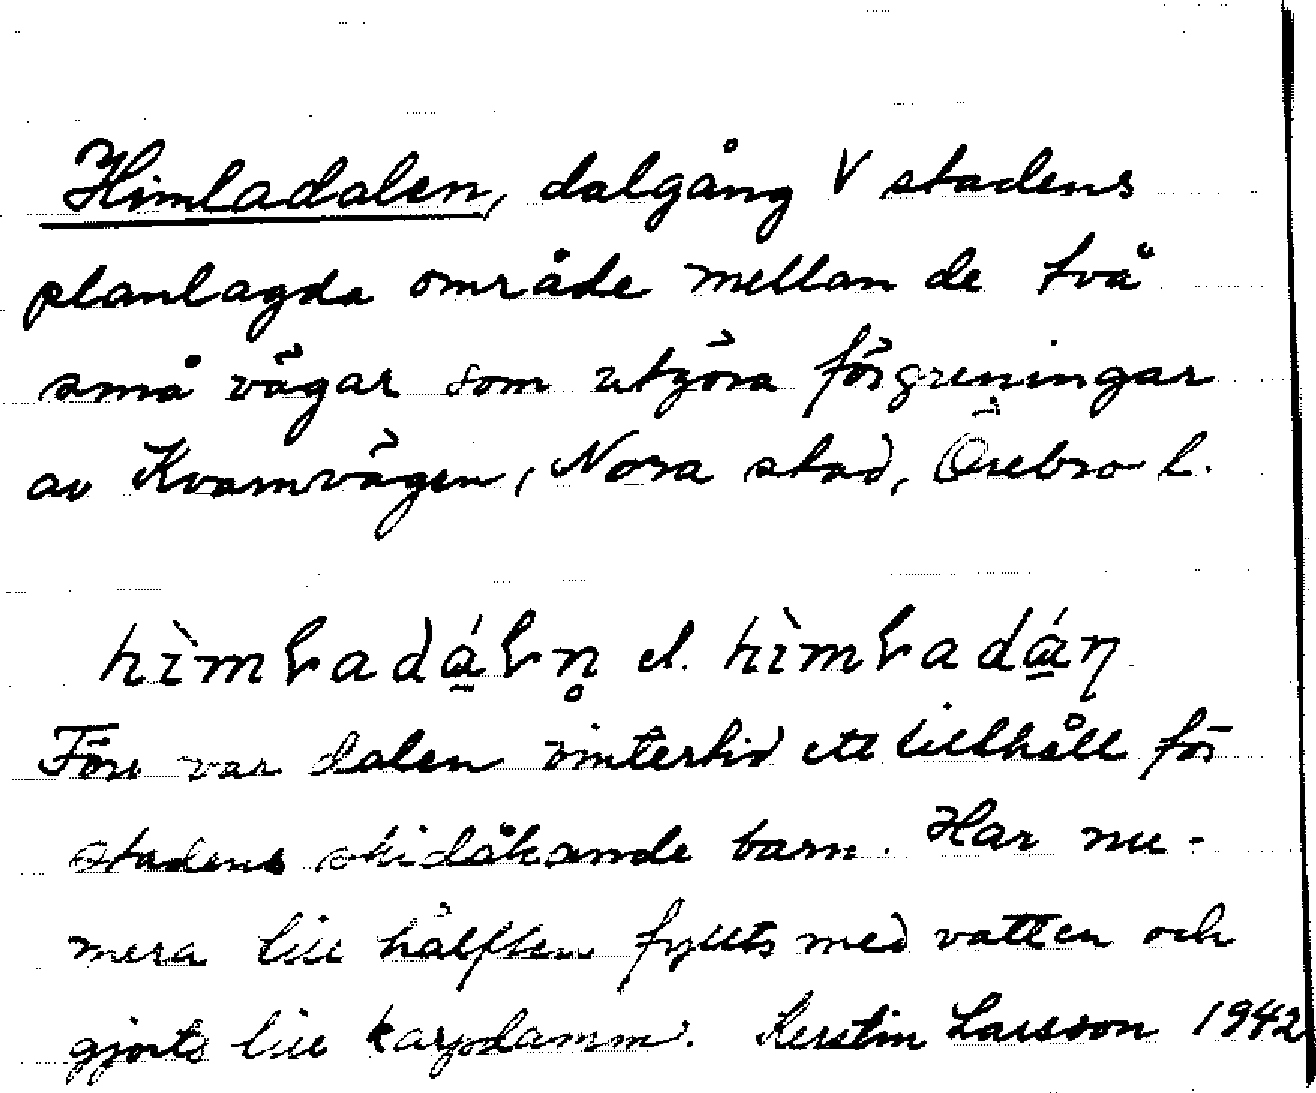 Himladalen, dalgång V stadens
planlagda område mellan de två
små vägar som utgöra förgreningar
av Kvarnvägen, Nora stad, Örebro l.
hìmɽadá̱ɽn̥ el. hìmɽadá̱ŋ
Förr var dalen vintertid ett tillhåll för
stadens skidåkande barn. Har nu-
mera till hälften fyllts med vatten och
gjorts till karpdamm. Kerstin Larsson 1942